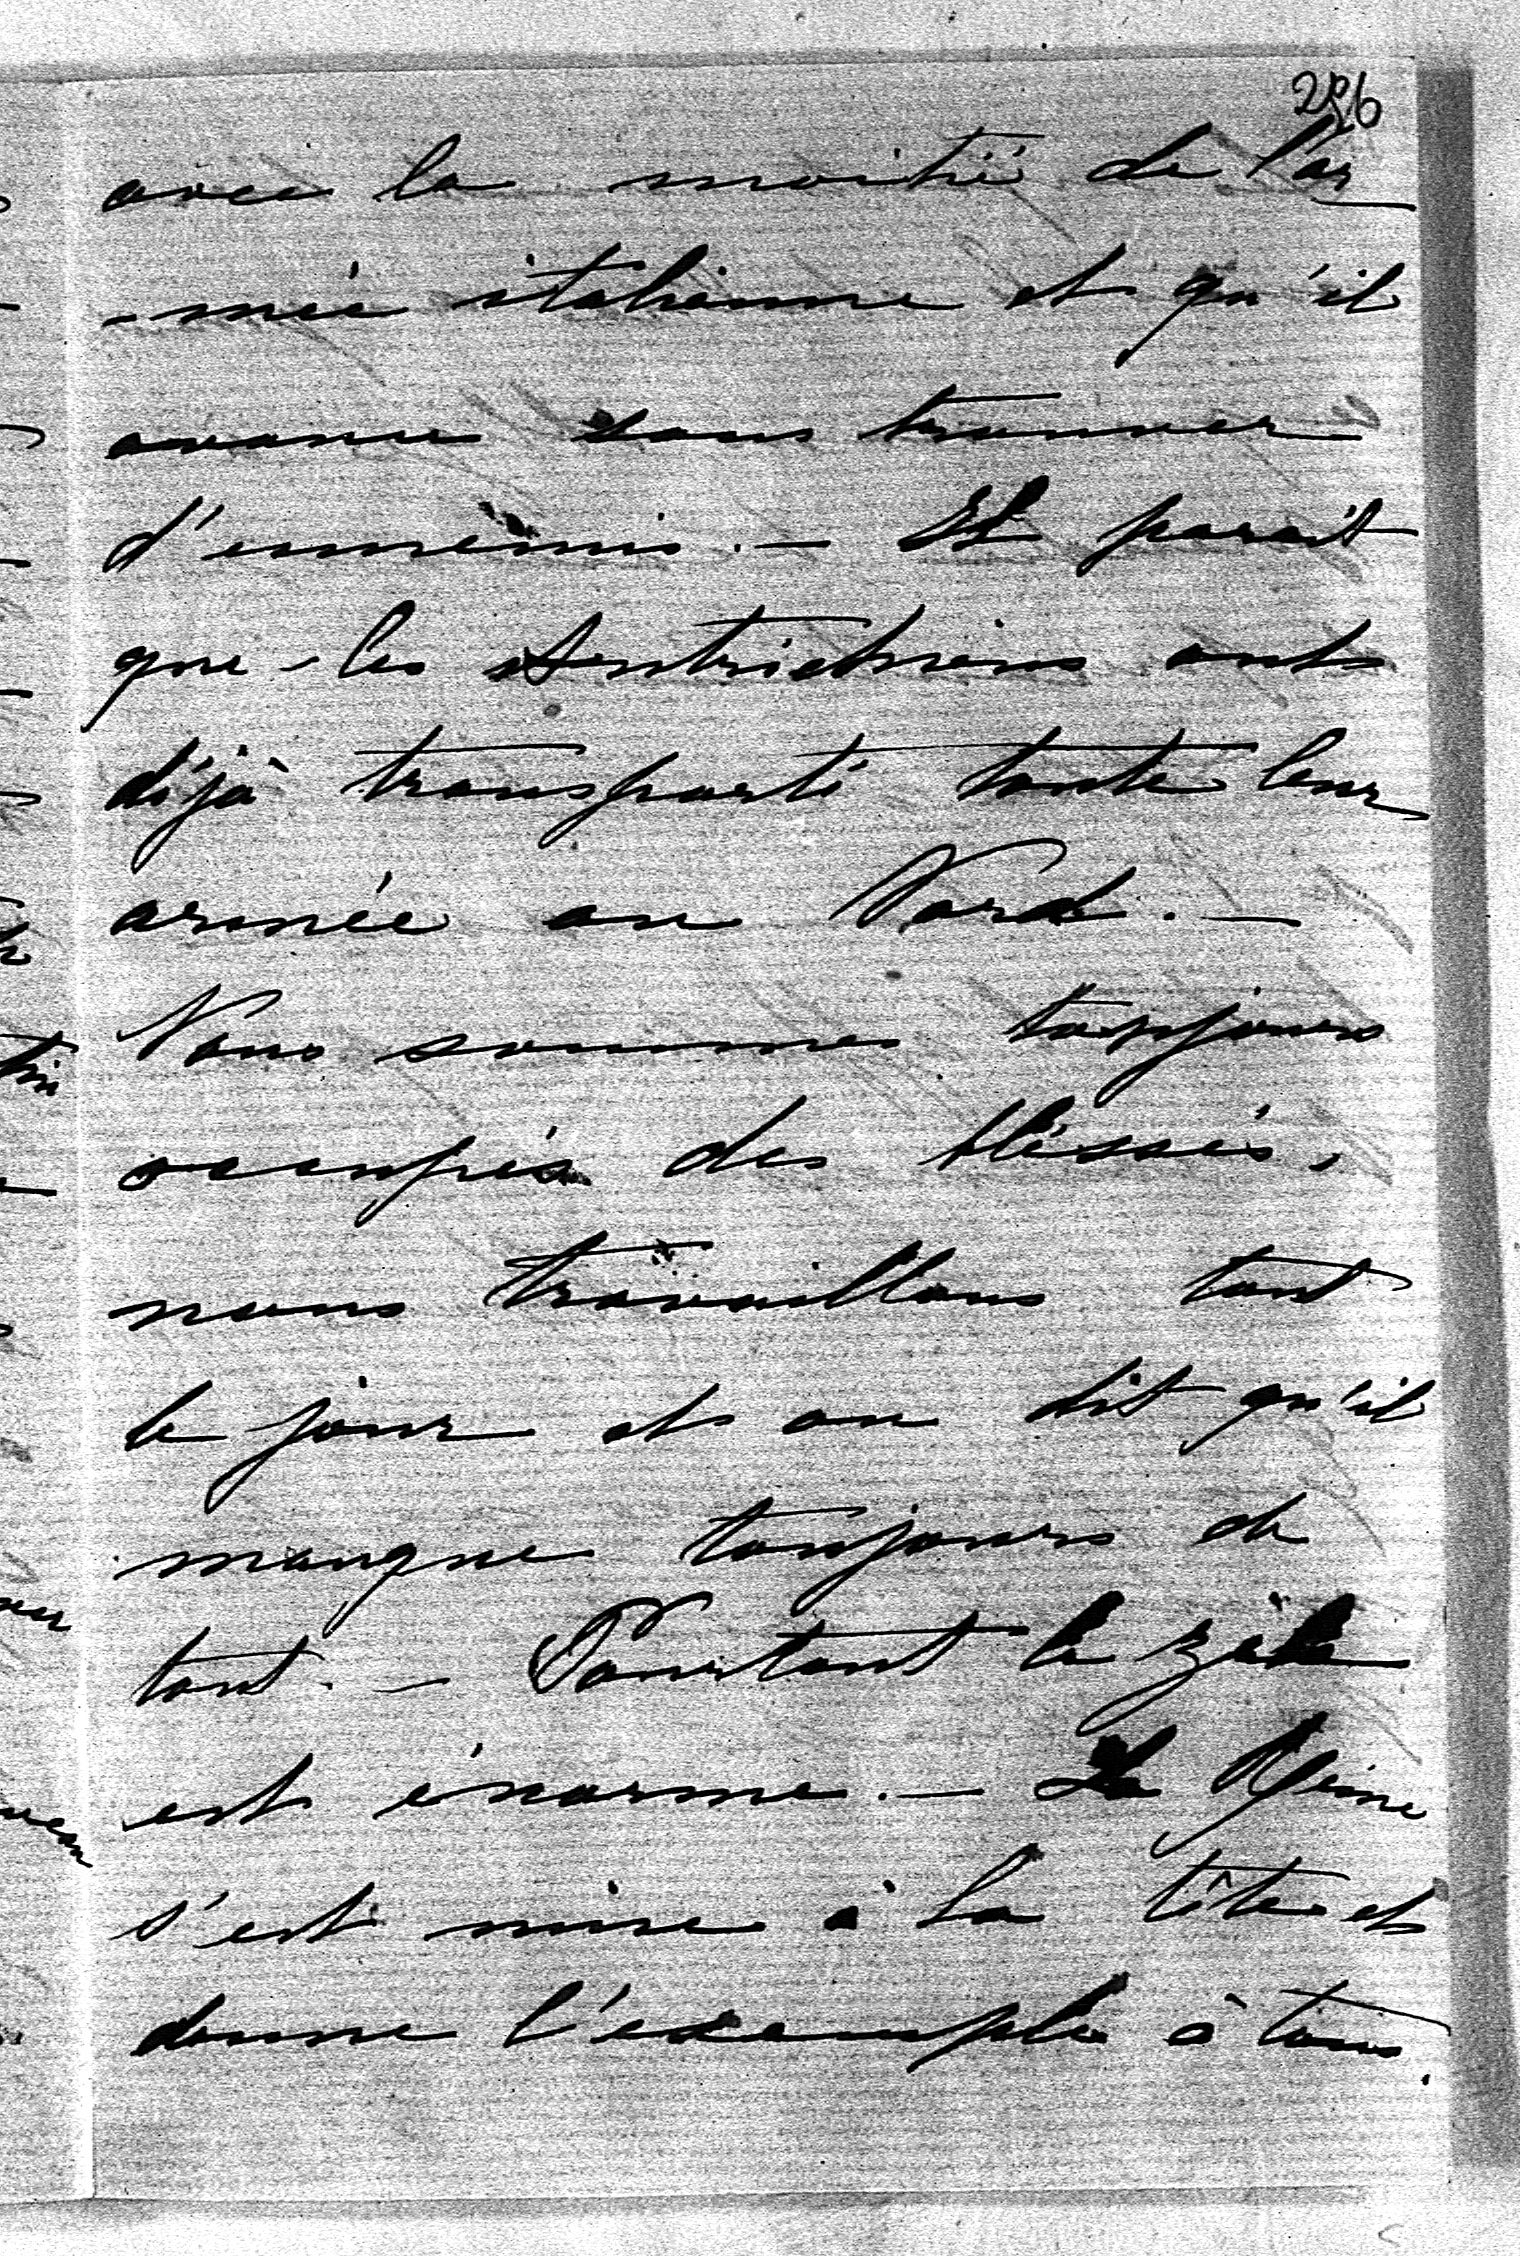 avec la moitié de l'ar
-mée italienne et qu'il
avance sans trouver
d'ennemis. — Il parait
que les Autrichiens ont
déjà transporté toute leur
armée au Nord. —
Nous sommes toujours
occupés des bléssés,
nous travaillons tout
le jour et on dit qu'il
manque toujours de
tout. — Pourtant le zèle
est énorme. — La Reine
s'est mise à la tête et
donne l'exemple à tous.